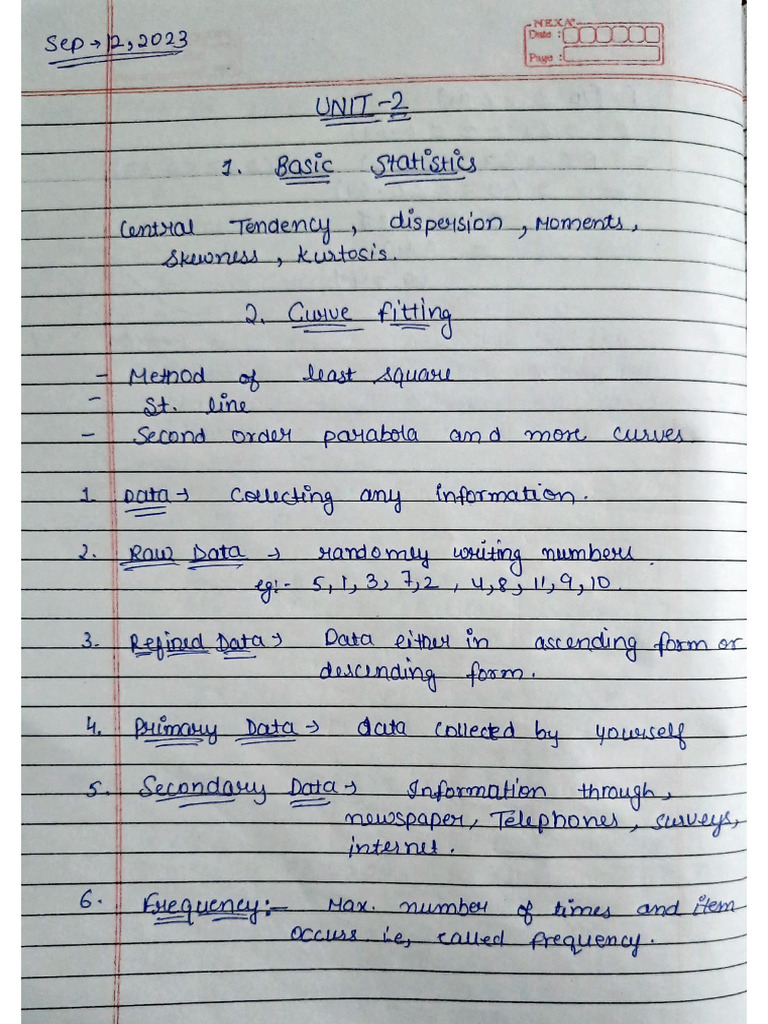 Sep → 12, 2023
NEXA
Date :
Page :
UNIT-2
1. Basic Statistics
Central Tendency, dispersion, Moments,
Skewness, Kurtosis.
2. Curve fitting
- Method of least square
- St. line
- Second order parabola and more curves.
1. Data → Collecting any information.
2. Raw Data → randomly writing numbers.
eg:- 5, 1, 3, 7, 2, 4, 8, 11, 9, 10.
3. Refined Data → Data either in ascending form or
descending form.
4. Primary Data → data collected by yourself
5. Secondary Data → Information through,
newspaper, Telephones, surveys,
internet.
6. Frequency:- Max. number of times and item
occurs i.e, called frequency.